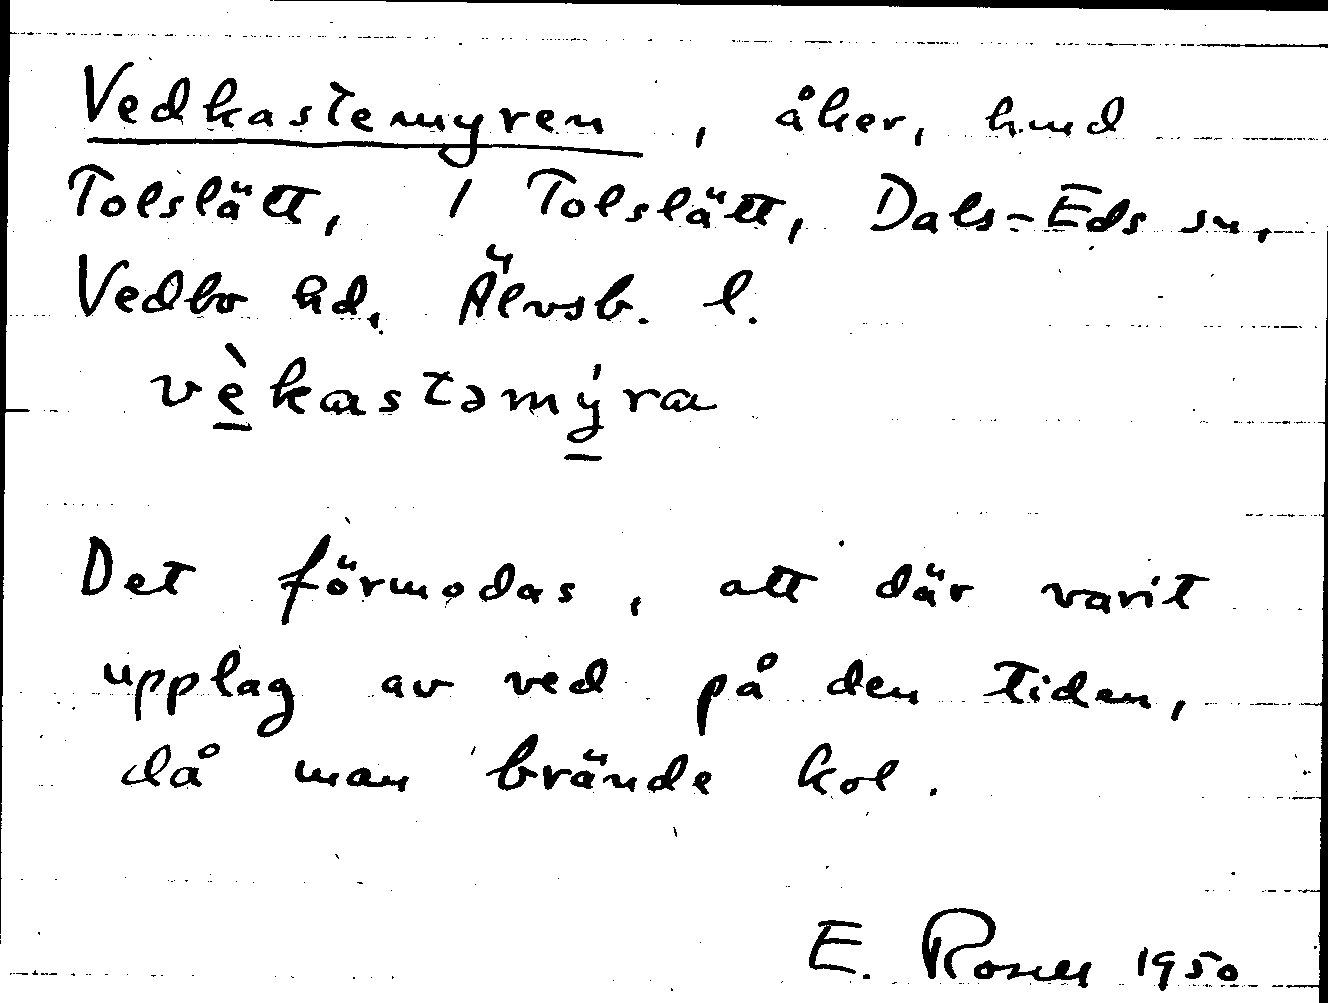 Vedkastemyren, åker, hmd
Tolslätt, 1 Tolslätt, Dals-Eds sn,
Vedbo hd, Älvsb. l.
vèkastəmýra
Det förmodas, att där varit
upplag av ved på den tiden,
då man brände kol.
E. Rosell 1950